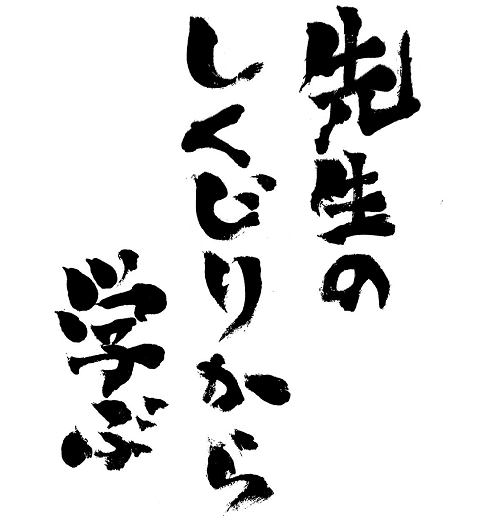 先生の
しくじりから
学ぶ